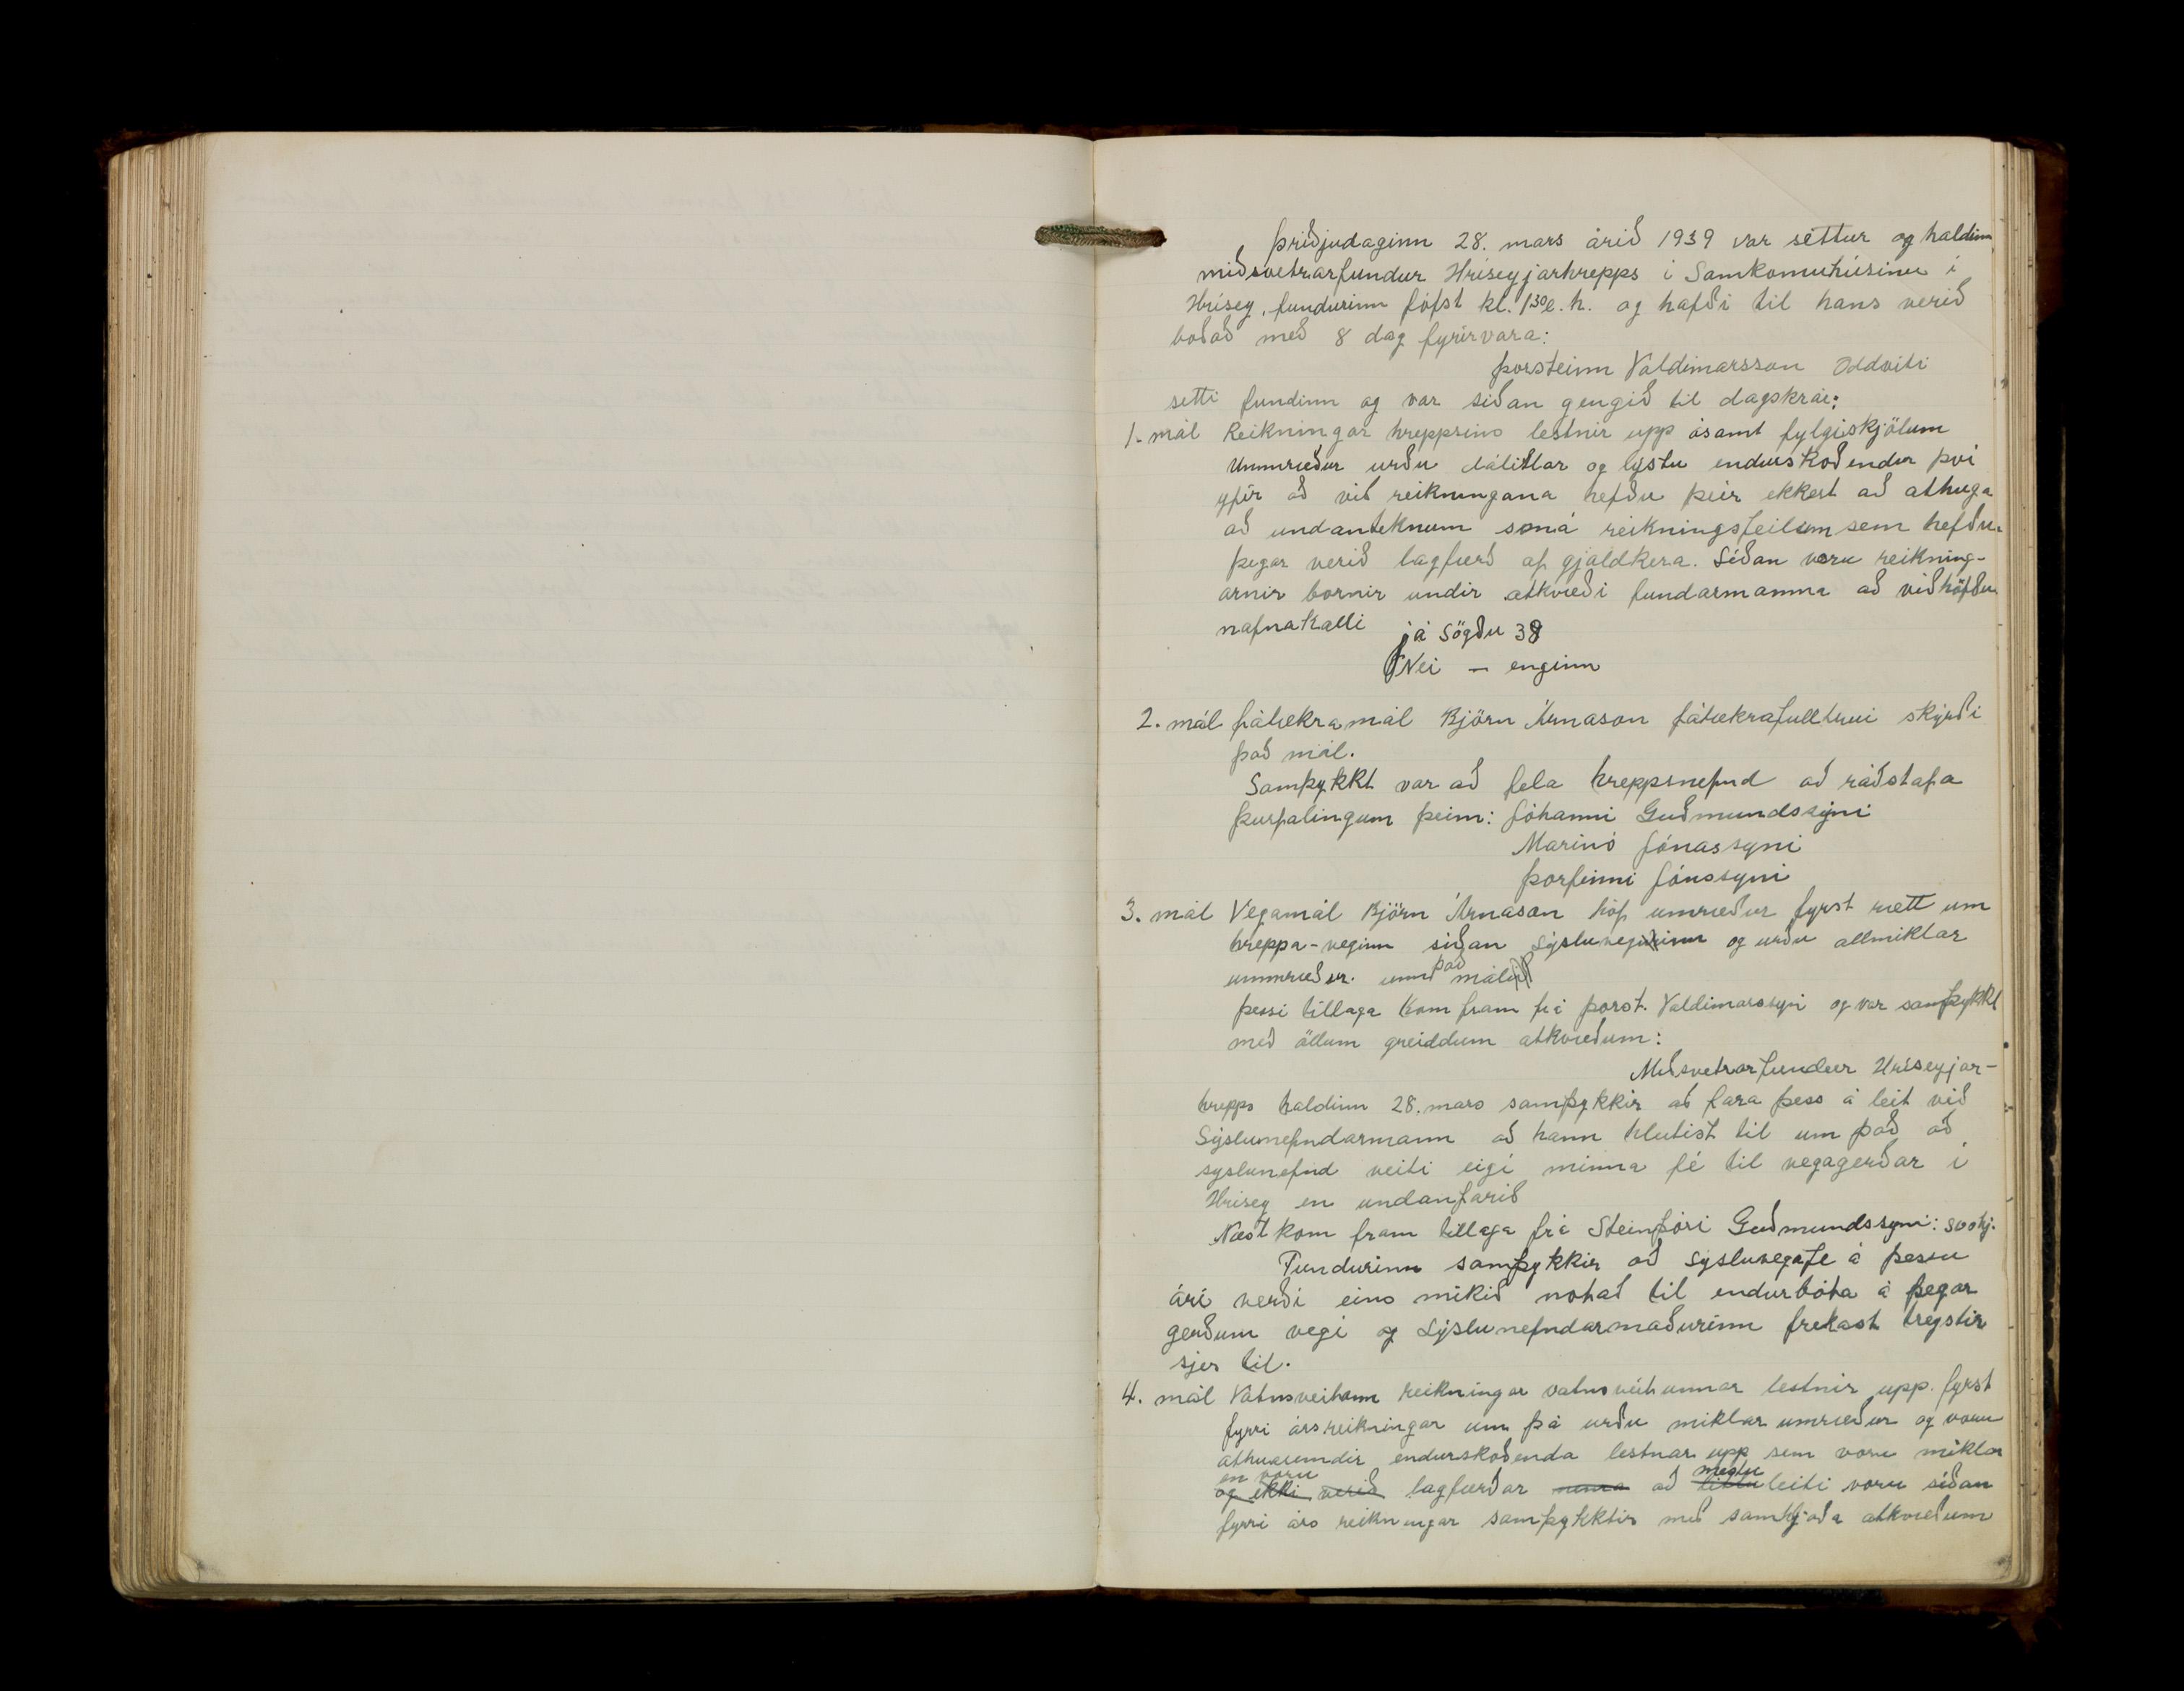 Þriðjudaginn 28. mars árið 1939 var settur og haldinn
miðsvetrarfundur Hríseyjarhrepps í Samkomuhúsinu í
Hrísey, fundurinn hófst kl. 1³⁰ e.h. og hafði til hans verið
boðað með 8 dag fyrirvara:
Þorsteinn Valdimarsson Oddviti
setti fundinn og var síðan gengið til dagskrár:
1. mál Reikningar hreppsins lestnir upp ásamt fylgiskjölum
Ummræður urðu dálitlar og lýstu endurskoðendur því
yfir að við reikningana hefðu þeir ekkert að athuga
að undanteknum smá reikningsfeilum sem hefðu
þegar verið lagfærð af gjaldkera. Síðan voru reikning-
arnir bornir undir atkvæði fundarmanna að viðhöfðu
nafnakalli já sögðu 38
Nei — enginn
2. mál fátækramál Björn Árnason fátækrafulltrúi skýrði
það mál.
Samþykkt var að fela hreppsnefnd að ráðstafa
þurfalingum þeim: Jóhanni Guðmundssyni
Marinó Jónassyni
Þorfinni Jónssyni
3. mál Vegamál Björn Árnason hóf umræður fyrst rætt um
hreppa-veginn síðan Sýsluveginn og urðu allmiklar
ummræður. um það mál
þessi tillaga kom fram frá Þorst. Valdimarssyni og var samþykkt
með öllum greiddum atkvæðum:
Miðsvetrarfundur Hríseyjar-
hrepps haldinn 28. mars samþykkir að fara þess á leit við
Sýslunefndarmann að hann hlutist til um það að
syslunefnd veiti eigi minna fé til vegagerðar í
Hrísey en undanfarið
Næst kom fram tillaga frá Steinþóri Guðmundssyni: svohj.
Fundurinn samþykkir að sýsluvegafe á þessu
ári verði eins mikið notað til endurbóta á þegar
gerðum vegi og Sýslunefndarmaðurinn frekast treystir
sjer til.
4. mál Vatnsveitann reikningar vatnsveitunnar lestnir upp. fyrst
fyrri ársreikningar um þá urðu miklar umræður og voru
athugaemdir endurskoðenda lestnar upp sem voru miklar
en voru mestu
og ekki verið lagfærðar nema að littlu leiti voru síðan
fyrri árs reikningar samþykktir með samhjóða atkvæðum